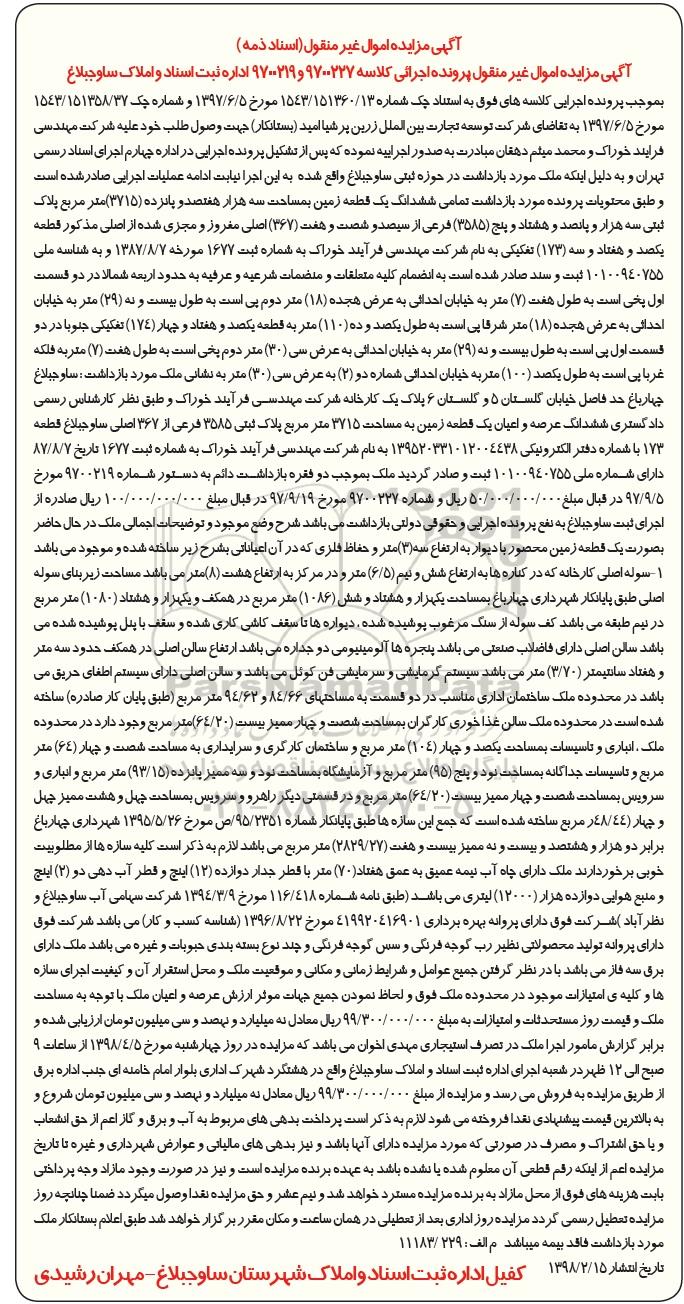 آگهی مزایده اموال غیر منقول (اسناد ذمه )
آگهی مزایده اموال غیر منقول پرونده اجرائی کلاسه ۹۷۰۰۲۲۷ و ۹۷۰۰۲۱۹ اداره ثبت اسناد و املاک ساوجبلاغ
بموجب پرونده اجرایی کلاسه های فوق به استناد چک شماره ۱۵۴۳/۱۵۱۳۶۰/۱۳ مورخ ۱۳۹۷/۶/۵ و شماره چک ۱۵۴۳/۱۵۱۳۵۸/۳۷
مورخ ۱۳۹۷/۶/۵ به تقاضای شرکت توسعه تجارت بین الملل زرین پرشیا امید (بستانکار) جهت وصول طلب خود علیه شرکت مهندسی
فرایند خوراک و محمد میثم دهقان مبادرت به صدور اجراییه نموده که پس از تشکیل پرونده اجرایی در اداره چهارم اجرای اسناد رسمی
تهران و به دلیل اینکه ملک مورد بازداشت در حوزه ثبتی ساوجبلاغ واقع شده به این اجرا نیابت ادامه عملیات اجرایی صادرشده است
و طبق محتویات پرونده مورد بازداشت تمامی ششدانگ یک قطعه زمین بمساحت سه هزار هفتصدو پانزده (۳۷۱۵)متر مربع پلاک
ثبتی سه هزار و پانصد و هشتاد و پنج (۳۵۸۵) فرعی از سیصدو شصت و هفت (۳۶۷) اصلی مفروز و مجزی شده از اصلی مذکور قطعه
یکصد و هفتاد و سه (۱۷۳) تفکیکی به نام شرکت مهندسی فرآیند خوراک به شماره ثبت ۱۶۷۷ مورخه ۱۳۸۷/۸/۷ و به شناسه ملی
۱۰۱۰۰۹۴۰۷۵۵ ثبت و سند صادر شده است به انضمام کلیه متعلقات و منضمات شرعیه و عرفیه به حدود اربعه شمالا در دو قسمت
اول پخی است به طول هفت (۷) متر به خیابان احداثی به عرض هجده (۱۸) متر دوم پی است به طول بیست و نه (۲۹) متر به خیابان
احداثی به عرض هجده (۱۸) متر شرقا پی است به طول یکصد و ده (۱۱۰) متر به قطعه یکصد و هفتاد و چهار (۱۷۴) تفکیکی جنوبا در دو
قسمت اول پی است به طول بیست و نه (۲۹) متر به خیابان احداثی به عرض سی (۳۰) متر دوم پخی است به طول هفت (۷) متربه فلکه
غربا پی است به طول یکصد (۱۰۰) متربه خیابان احداثی شماره دو (۲) به عرض سی (۳۰) متر به نشانی ملک مورد بازداشت : ساوجبلاغ
چهارباغ حد فاصل خیابان گلستان ۵ و گلستان ۶ پلاک یک کارخانه شرکت مهندسی فرآیند خوراک و طبق نظر کارشناس رسمی
دادگستری ششدانگ عرصه و اعیان یک قطعه زمین به مساحت ۳۷۱۵ متر مربع پلاک ثبتی ۳۵۸۵ فرعی از ۳۶۷ اصلی ساوجبلاغ قطعه
۱۷۳ با شماره دفتر الکترونیکی ۱۳۹۵۲۰۳۳۱۰۱۲۰۰۴۴۳۸ به نام شرکت مهندسی فرآیند خوراک به شماره ثبت ۱۶۷۷ تاریخ ۸۷/۸/۷
دارای شماره ملی ۱۰۱۰۰۹۴۰۷۵۵ ثبت و صادر گردید ملک بموجب دو فقره بازداشت دائم به دستور شماره ۹۷۰۰۲۱۹ مورخ
۹۷/۹/۵ در قبال مبلغ ۵۰/۰۰۰/۰۰۰/۰۰۰ ریال و شماره ۹۷۰۰۲۲۷ مورخ ۹۷/۹/۱۹ در قبال مبلغ ۱۰۰/۰۰۰/۰۰۰/۰۰۰ ریال صادره از
اجرای ثبت ساوجبلاغ به نفع پرونده اجرایی و حقوقی دولتی بازداشت می باشد شرح وضع موجود و توضیحات اجمالی ملک در حال حاضر
بصورت یک قطعه زمین محصور با دیوار به ارتفاع سه(۳)متر و حفاظ فلزی که در آن اعیاناتی بشرح زیر ساخته شده و موجود می باشد
۱-سوله اصلی کارخانه که در کناره ها به ارتفاع شش و نیم (۶/۵) متر و در مرکز به ارتفاع هشت (۸)متر می باشد مساحت زیربنای سوله
اصلی طبق پایانکار شهرداری چهارباغ بمساحت یکهزار و هشتاد و شش (۱۰۸۶) متر مربع در همکف و یکهزار و هشتاد (۱۰۸۰) متر مربع
در نیم طبقه می باشد کف سوله از سنگ مرغوب پوشیده شده ، دیواره ها تا سقف کاشی کاری شده و سقف با پنل پوشیده شده می
باشد سالن اصلی دارای فاضلاب صنعتی می باشد پنجره ها آلومینیومی دو جداره می باشد ارتفاع سالن اصلی در همکف حدود سه متر
و هفتاد سانتیمتر (۳/۷۰) متر می باشد سیستم گرمایشی و سرمایشی فن کوئل می باشد و سالن اصلی دارای سیستم اطفای حریق می
باشد در محدوده ملک ساختمان اداری مناسب در دو قسمت به مساحتهای ۸۴/۶۶ و ۹۴/۶۲ متر مربع (طبق پایان کار صادره) ساخته
شده است در محدوده ملک سالن غذا خوری کارگران بمساحت شصت و چهار ممیز بیست (۶۴/۲۰)متر مربع وجود دارد در محدوده
ملک ، انباری و تاسیسات بمساحت یکصد و چهار (۱۰۴) متر مربع و ساختمان کارگری و سرایداری به مساحت شصت و چهار (۶۴) متر
مربع و تاسیسات جداگانه بمساحت نود و پنج (۹۵) متر مربع و آزمایشگاه بمساحت نود و سه ممیز پانزده (۹۳/۱۵) متر مربع و انباری و
سرویس بمساحت شصت و چهار ممیز بیست (۶۴/۲۰)متر مربع و در قسمتی دیگر راهرو و سرویس بمساحت چهل و هشت ممیز چهل
و چهار (۴۸/۴۴)ر مربع ساخته شده است که جمع این سازه ها طبق پایانکار شماره ۹۵/۲۳۵۱/ص مورخ ۱۳۹۵/۵/۲۶ شهرداری چهارباغ
برابر دو هزار و هشتصد و بیست و نه ممیز بیست و هفت (۲۸۲۹/۲۷) متر مربع می باشد لازم به ذکر است کلیه سازه ها از مطلوبیت
خوبی برخوردارند ملک دارای چاه آب نیمه عمیق به عمق هفتاد(۷۰) متر با قطر جدار دوازده (۱۲) اینچ و قطر آب دهی دو (۲) اینچ
و منبع هوایی دوازده هزار (۱۲۰۰۰) لیتری می باشد (طبق نامه شماره ۱۱۶/۴۱۸ مورخ ۱۳۹۴/۳/۹ شرکت سهامی آب ساوجبلاغ و
نظرآباد )شرکت فوق دارای پروانه بهره برداری ۴۱۹۹۲۰۴۱۶۹۰۱ مورخ ۱۳۹۶/۸/۲۲ (شناسه کسب و کار) می باشد شرکت فوق
دارای پروانه تولید محصولاتی نظیر رب گوجه فرنگی و سس گوجه فرنگی و چند نوع بسته بندی حبوبات و غیره می باشد ملک دارای
برق سه فاز می باشد با در نظر گرفتن جمیع عوامل و شرایط زمانی و مکانی و موقعیت ملک و محل استقرار آن و کیفیت اجرای سازه
ها و کلیه ی امتیازات موجود در محدوده ملک فوق و لحاظ نمودن جمیع جهات موثر ارزش عرصه و اعیان ملک با توجه به مساحت
ملک و قیمت روز مستحدثات و امتیازات به مبلغ ۹۹/۳۰۰/۰۰۰/۰۰۰ ریال معادل نه میلیارد و نهصد و سی میلیون تومان ارزیابی شده و
برابر گزارش مامور اجرا ملک در تصرف استیجاری مهدی اخوان می باشد که مزایده در روز چهارشنبه مورخ ۱۳۹۸/۴/۵ از ساعات ۹
صبح الی ۱۲ ظهردر شعبه اجرای اداره ثبت اسناد و املاک ساوجبلاغ واقع در هشتگرد شهرک اداری بلوار امام خامنه ای جنب اداره برق
از طریق مزایده به فروش می رسد و مزایده از مبلغ ۹۹/۳۰۰/۰۰۰/۰۰۰ ریال معادل نه میلیارد و نهصد و سی میلیون تومان شروع و
به بالاترین قیمت پیشنهادی نقدا فروخته می شود لازم به ذکر است پرداخت بدهی های مربوط به آب و برق و گاز اعم از حق انشعاب
و یا حق اشتراک و مصرف در صورتی که مورد مزایده دارای آنها باشد و نیز بدهی های مالیاتی و عوارض شهرداری و غیره تا تاریخ
مزایده اعم از اینکه رقم قطعی آن معلوم شده یا نشده باشد به عهده برنده مزایده است و نیز در صورت وجود مازاد وجه پرداختی
بابت هزینه های فوق از محل مازاد به برنده مزایده مسترد خواهد شد و نیم عشر و حق مزایده نقدا وصول میگردد ضمنا چنانچه روز
مزایده تعطیل رسمی گردد مزایده روز اداری بعد از تعطیلی در همان ساعت و مکان مقرر برگزار خواهد شد طبق اعلام بستانکار ملک
مورد بازداشت فاقد بیمه میباشد م الف : ۱۱۱۸۳/ ۲۲۹
تاریخ انتشار ۱۳۹۸/۲/۱۵
کفیل اداره ثبت اسناد و املاک شهرستان ساوجبلاغ - مهران رشیدی
ParsNamadData
۰۲۱-۸۸۳۴۹۶۷۰-۵